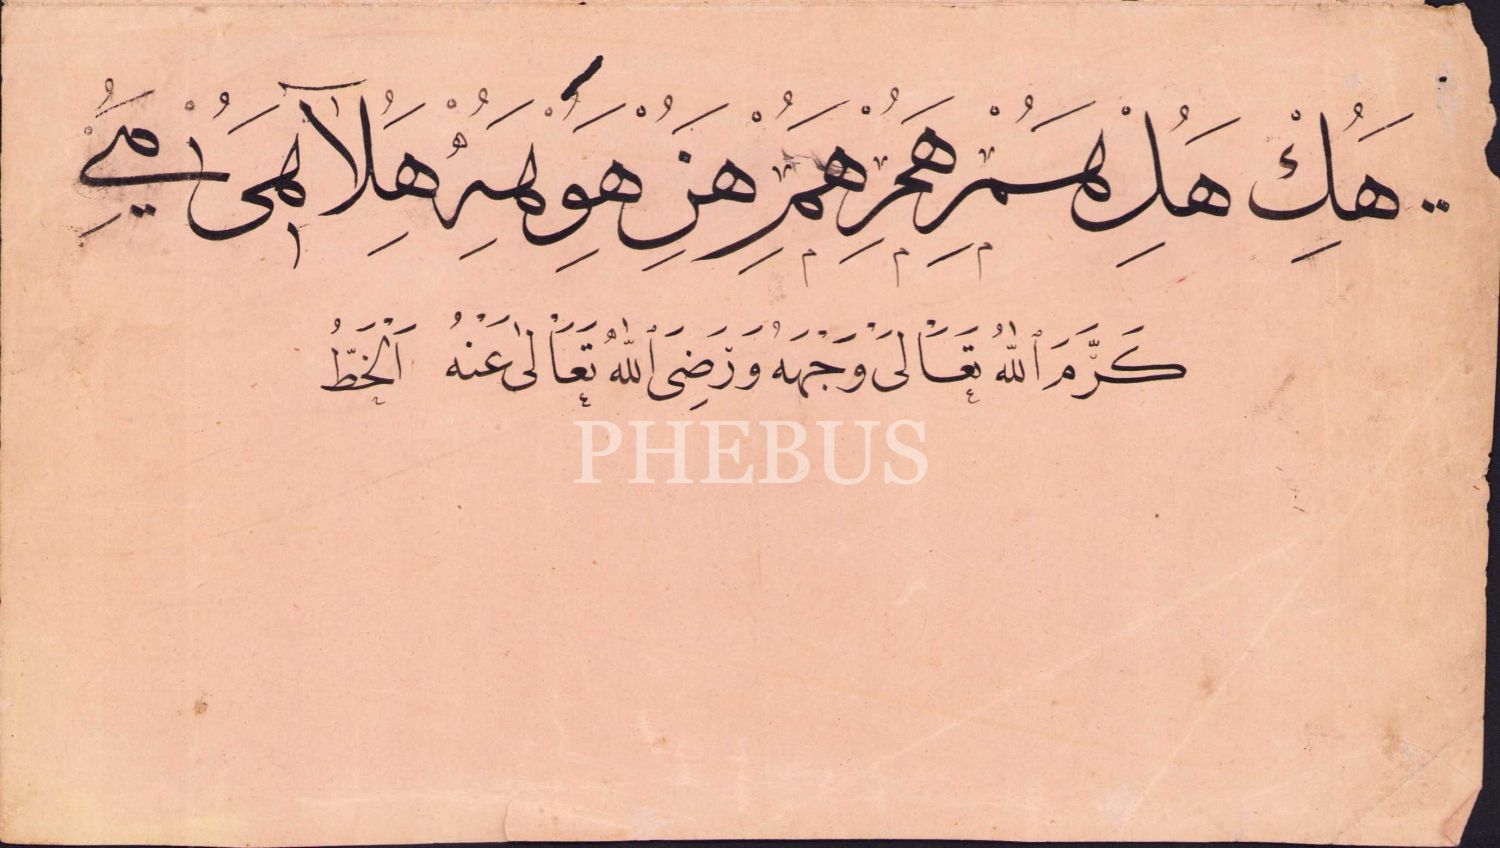 هك هل هم هم هم هن هو هه هلا هى
كَرَّمَ ٱللّٰهُ تَعَالٰى وَجْهَهُ وَرَضِىَ ٱللّٰهُ تَعَالٰى عَنْهُ اَلْخَطُّ
PHEBUS